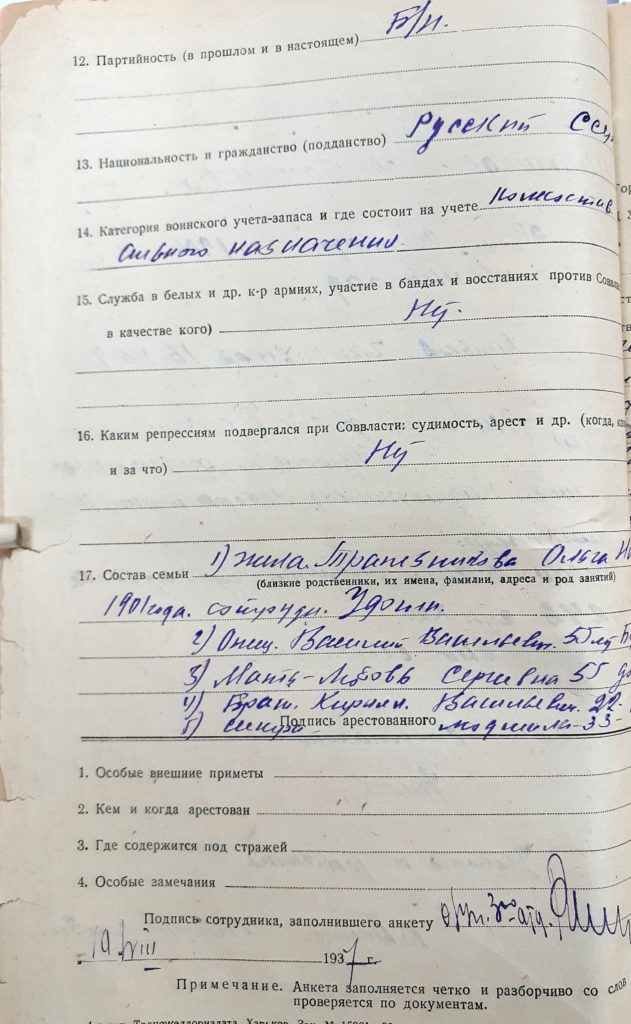 12. Партийность (в прошлом и в настоящем) Б/п.
13. Национальность и гражданство (подданство) Русский ССР
14. Категория воинского учета-запаса и где состоит на учете
назначения.
15. Служба в белых и др. к-р армиях, участие в бандах и восстаниях против Соввла
в качестве кого) Нет.
16. Каким репрессиям подвергался при Соввласти: судимость, арест и др. (когда,
и за что) Нет
17. Состав семьи 1) жена. Ольга
(близкие родственники, их имена, фамилии, адреса и род занятий)
1901 года.
2) Отец. Василий Васильевич. 55
3) Мать-Любовь Сергеевна 55
4) Брат. Кирилл. Васильевич. 22
Подпись арестованного
5) 33
1. Особые внешние приметы
2. Кем и когда арестован
3. Где содержится под стражей
4. Особые замечания
Подпись сотрудника, заполнившего анкету
19/VIII 1937 г.
Примечание. Анкета заполняется четко и разборчиво со слов
проверяется по документам.